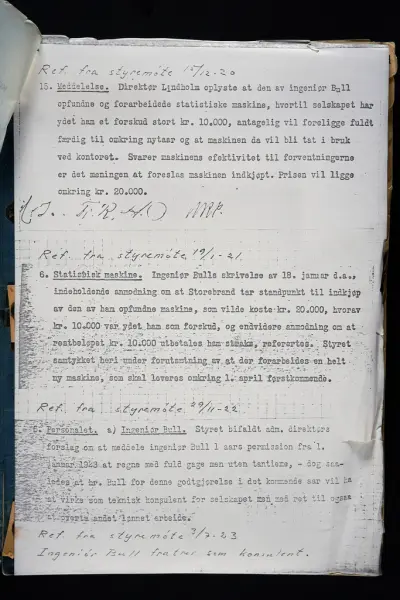 Ref. fra styremöte 15/12-20
15. Meddelelse. Direktør Lindholm oplyste at den av ingeniør Bull
opfundne og forarbeidede statistiske maskine, hvortil selskapet har
ydet ham et forskud stort kr. 10.000, antagelig vil foreligge fuldt
færdig til omkring nytaar og at maskinen da vil bli tat i bruk
ved kontoret. Svarer maskinens efektivitet til forventningerne
er det meningen at foreslaa maskinen indkjøpt. Prisen vil ligge
omkring kr. 20.000.
Ref. fra styremöte 19/1-21
6. Statistisk maskine. Ingeniør Bulls skrivelse av 18. januar d.a.,
indeholdende anmodning om at Storebrand tar standpunkt til indkjøp
av den av ham opfundne maskine, som vilde koste kr. 20,000, hvorav
kr. 10.000 var ydet ham som forskud, og endvidere anmodning om at
restbeløpet kr. 10.000 utbetales ham straks, referertes. Styret
samtykket heri under forutsætning av at der forarbeides en helt
ny maskine, som skal leveres omkring 1. april førstkommende.
Ref. fra styremöte 29/11-22
Personalet. a) Ingeniør Bull. Styret bifaldt adm. direktørs
forslag om at meddele ingeniør Bull 1 aars permission fra 1.
januar 1923 at regne med fuld gage men uten tantieme, - dog saa-
ledes at hr. Bull for denne godtgjørelse i det kommende aar vil ha
at virke som teknisk konsulent for selskapet med ret til ogsaa
andet lønnet arbeide.
Ref. fra styremöte 3/7-23
Ingeniör Bull fratrær som konsulent.